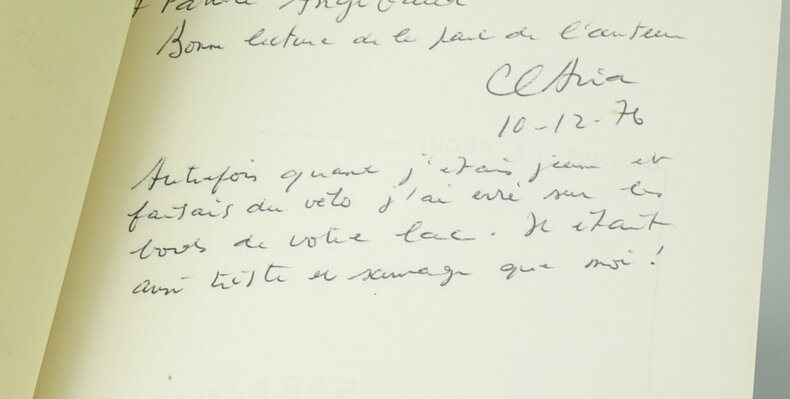 Bonne lecture de la part de l'auteur
Cl Aria
10-12-76
Autrefois quand j'étais jeune et
faisais du vélo j'ai erré sur les
bords de votre lac. Il était
aussi triste et sauvage que moi!